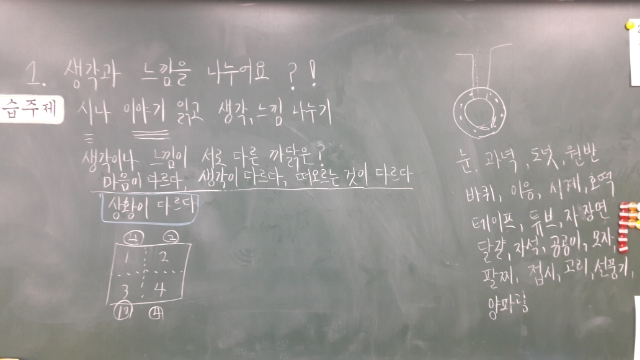 1. 생각과 느낌을 나누어요 ?!
습주제
시나 이야기 읽고 생각, 느낌 나누기
생각이나 느낌이 서로 다른 까닭은?
마음이 다르다, 생각이 다르다, 떠오르는 것이 다르다
상황이 다르다
1 2
3 4
눈, 과녁, 도넛, 원반
바퀴, 이응, 시계, 호떡
테이프, 튜브, 자장면
달걀, 자석, 공공이, 모자,
팔찌, 접시, 고리, 선풍기,
양파링